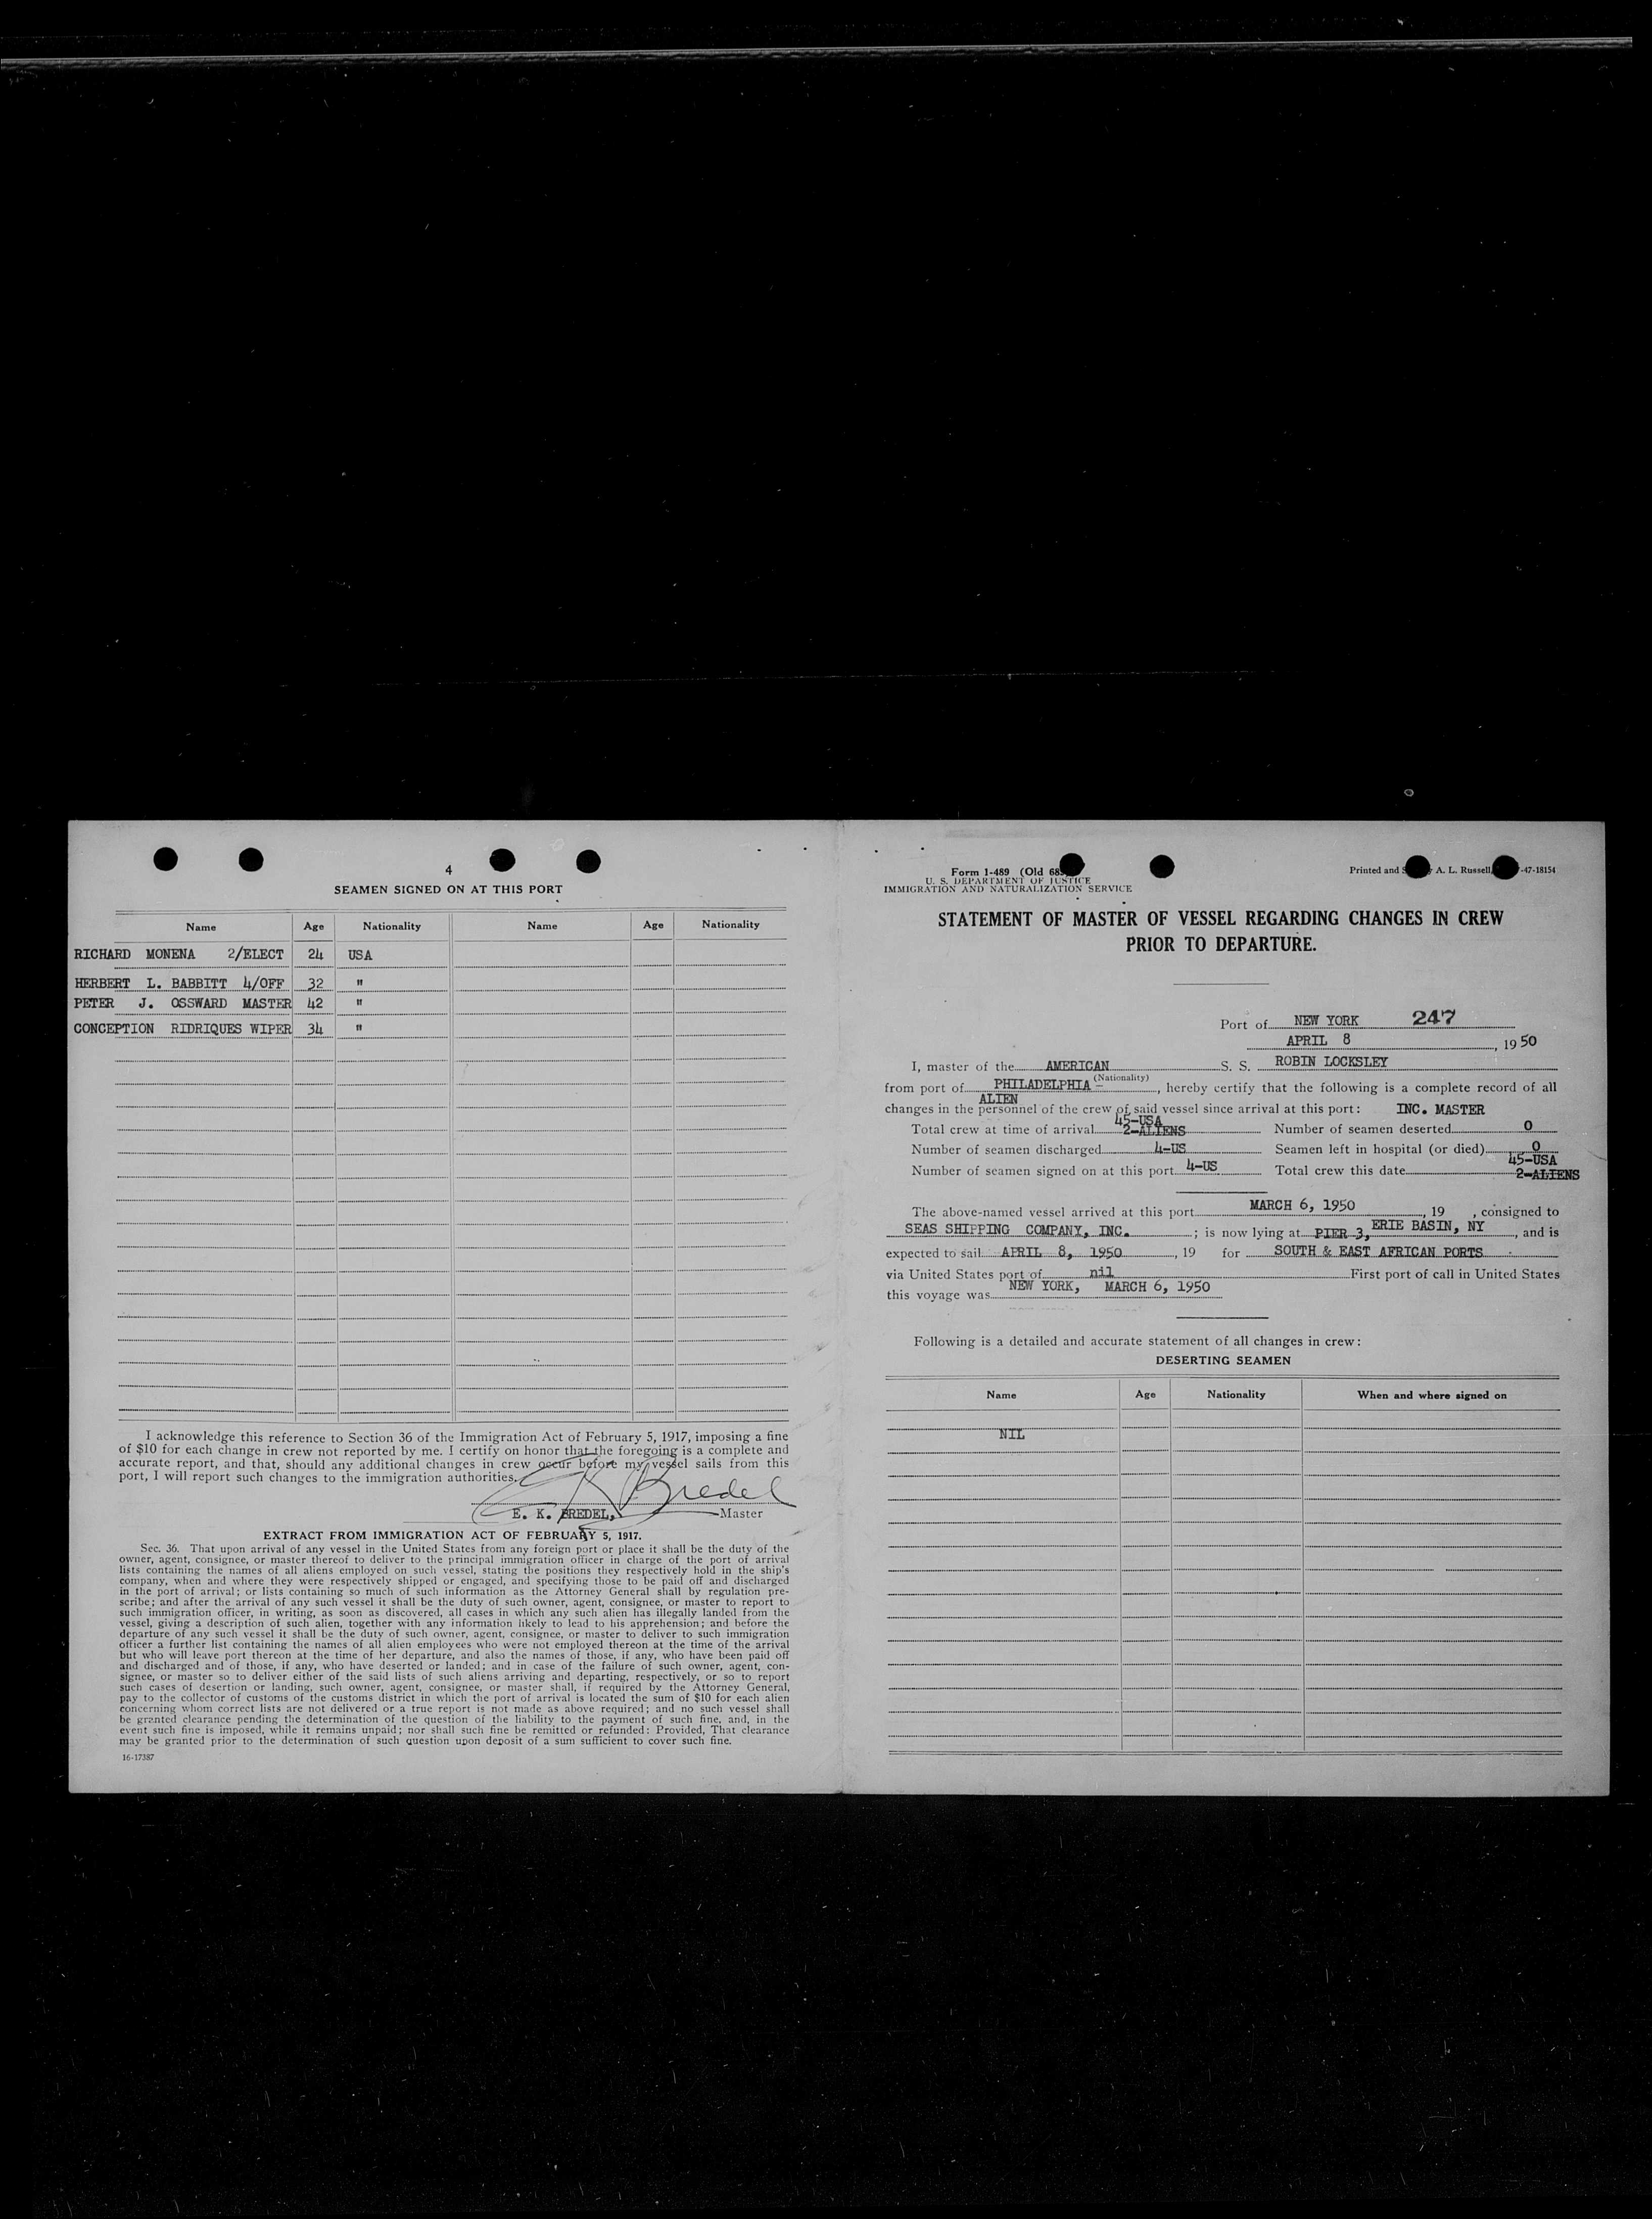 4
SEAMEN SIGNED ON AT THIS PORT
Name Age Nationality Name Age Nationality
RICHARD MONENA 2/ELECT 24 USA
HERBERT L. BABBITT 4/OFF 32 "
PETER J. OSSWARD MASTER 42 "
CONCEPTION RIDRIQUES WIPER 34 "
I acknowledge this reference to Section 36 of the Immigration Act of February 5, 1917, imposing a fine
of $10 for each change in crew not reported by me. I certify on honor that the foregoing is a complete and
accurate report, and that, should any additional changes in crew occur before my vessel sails from this
port, I will report such changes to the immigration authorities.
E K Bredel
E. K. BREDEL, Master
EXTRACT FROM IMMIGRATION ACT OF FEBRUARY 5, 1917.
Sec. 36. That upon arrival of any vessel in the United States from any foreign port or place it shall be the duty of the
owner, agent, consignee, or master thereof to deliver to the principal immigration officer in charge of the port of arrival
lists containing the names of all aliens employed on such vessel, stating the positions they respectively hold in the ship's
company, when and where they were respectively shipped or engaged, and specifying those to be paid off and discharged
in the port of arrival; or lists containing so much of such information as the Attorney General shall by regulation pre-
scribe; and after the arrival of any such vessel it shall be the duty of such owner, agent, consignee, or master to report to
such immigration officer, in writing, as soon as discovered, all cases in which any such alien has illegally landed from the
vessel, giving a description of such alien, together with any information likely to lead to his apprehension; and before the
departure of any such vessel it shall be the duty of such owner, agent, consignee, or master to deliver to such immigration
officer a further list containing the names of all alien employees who were not employed thereon at the time of the arrival
but who will leave port thereon at the time of her departure, and also the names of those, if any, who have been paid off
and discharged and of those, if any, who have deserted or landed; and in case of the failure of such owner, agent, con-
signee, or master so to deliver either of the said lists of such aliens arriving and departing, respectively, or so to report
such cases of desertion or landing, such owner, agent, consignee, or master shall, if required by the Attorney General,
pay to the collector of customs of the customs district in which the port of arrival is located the sum of $10 for each alien
concerning whom correct lists are not delivered or a true report is not made as above required; and no such vessel shall
be granted clearance pending the determination of the question of the liability to the payment of such fine, and, in the
event such fine is imposed, while it remains unpaid; nor shall such fine be remitted or refunded: Provided, That clearance
may be granted prior to the determination of such question upon deposit of a sum sufficient to cover such fine.
16-17387
Form 1-489 (Old 68
U. S. DEPARTMENT OF JUSTICE
IMMIGRATION AND NATURALIZATION SERVICE
Printed and A. L. Russell, -47-18154
STATEMENT OF MASTER OF VESSEL REGARDING CHANGES IN CREW
PRIOR TO DEPARTURE.
Port of NEW YORK 247
APRIL 8, 19 50
I, master of the AMERICAN S. S. ROBIN LOCKSLEY
(Nationality)
from port of PHILADELPHIA, hereby certify that the following is a complete record of all
ALIEN
changes in the personnel of the crew of said vessel since arrival at this port: INC. MASTER
45-USA
Total crew at time of arrival 2-ALIENS Number of seamen deserted 0
Number of seamen discharged 4-US Seamen left in hospital (or died) 0
45-USA
Number of seamen signed on at this port 4-US Total crew this date 2-ALIENS
The above-named vessel arrived at this port MARCH 6, 1950, 19 , consigned to
SEAS SHIPPING COMPANY, INC. ; is now lying at PIER 3, ERIE BASIN, NY, and is
expected to sail APRIL 8, 1950, 19 for SOUTH & EAST AFRICAN PORTS
via United States port of nil First port of call in United States
this voyage was NEW YORK, MARCH 6, 1950
Following is a detailed and accurate statement of all changes in crew:
DESERTING SEAMEN
Name Age Nationality When and where signed on
NIL